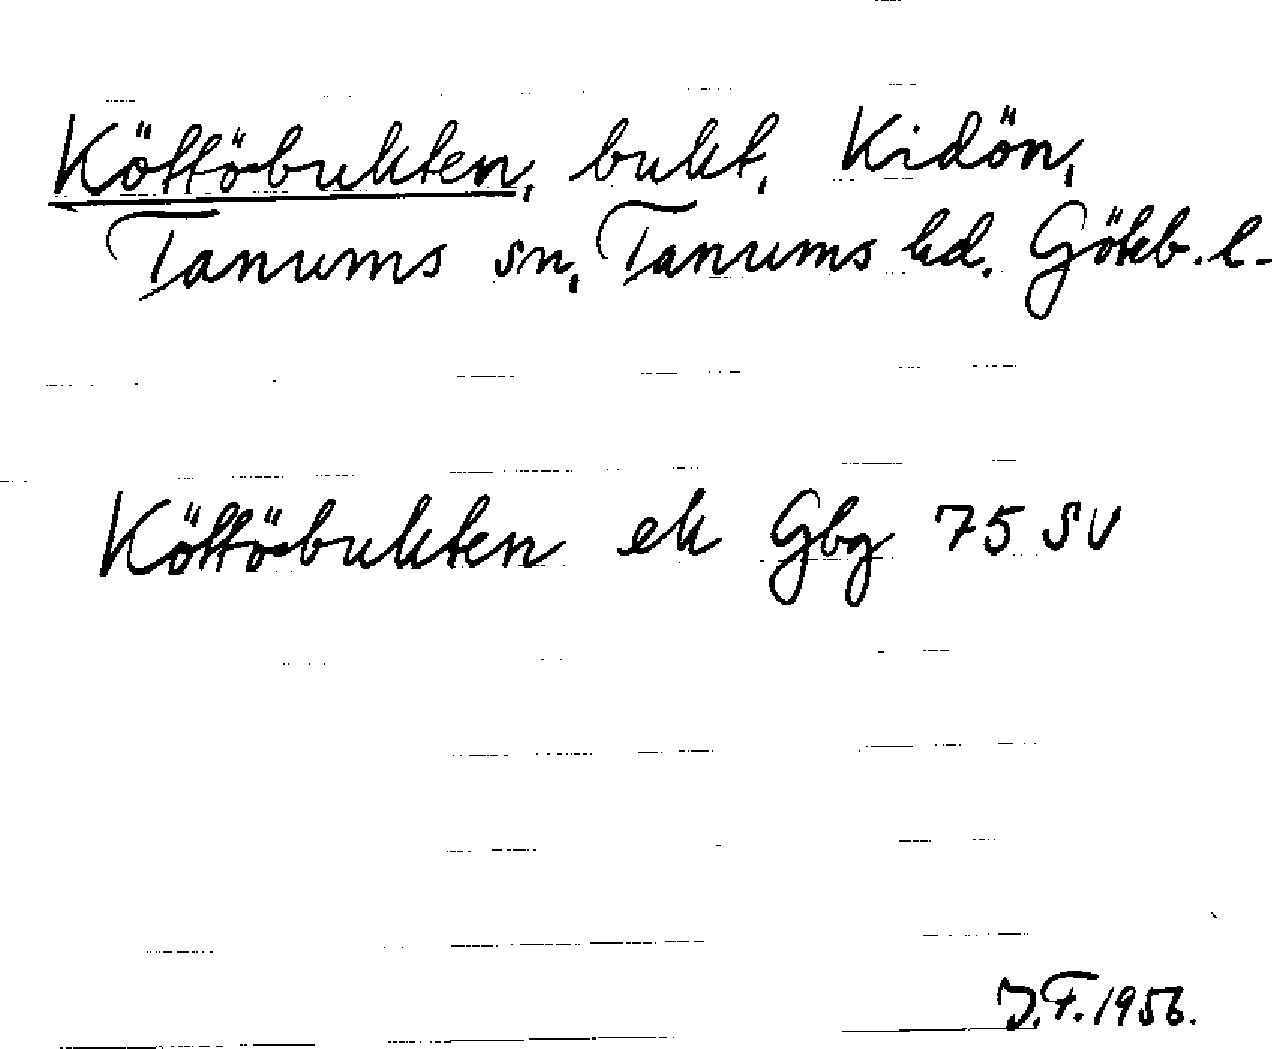 Köttöbukten, bukt, Kidön,
Tanums sn, Tanums hd. Göteb. l.
Köttöbukten ek Gbg 75 SV
J.F. 1956.